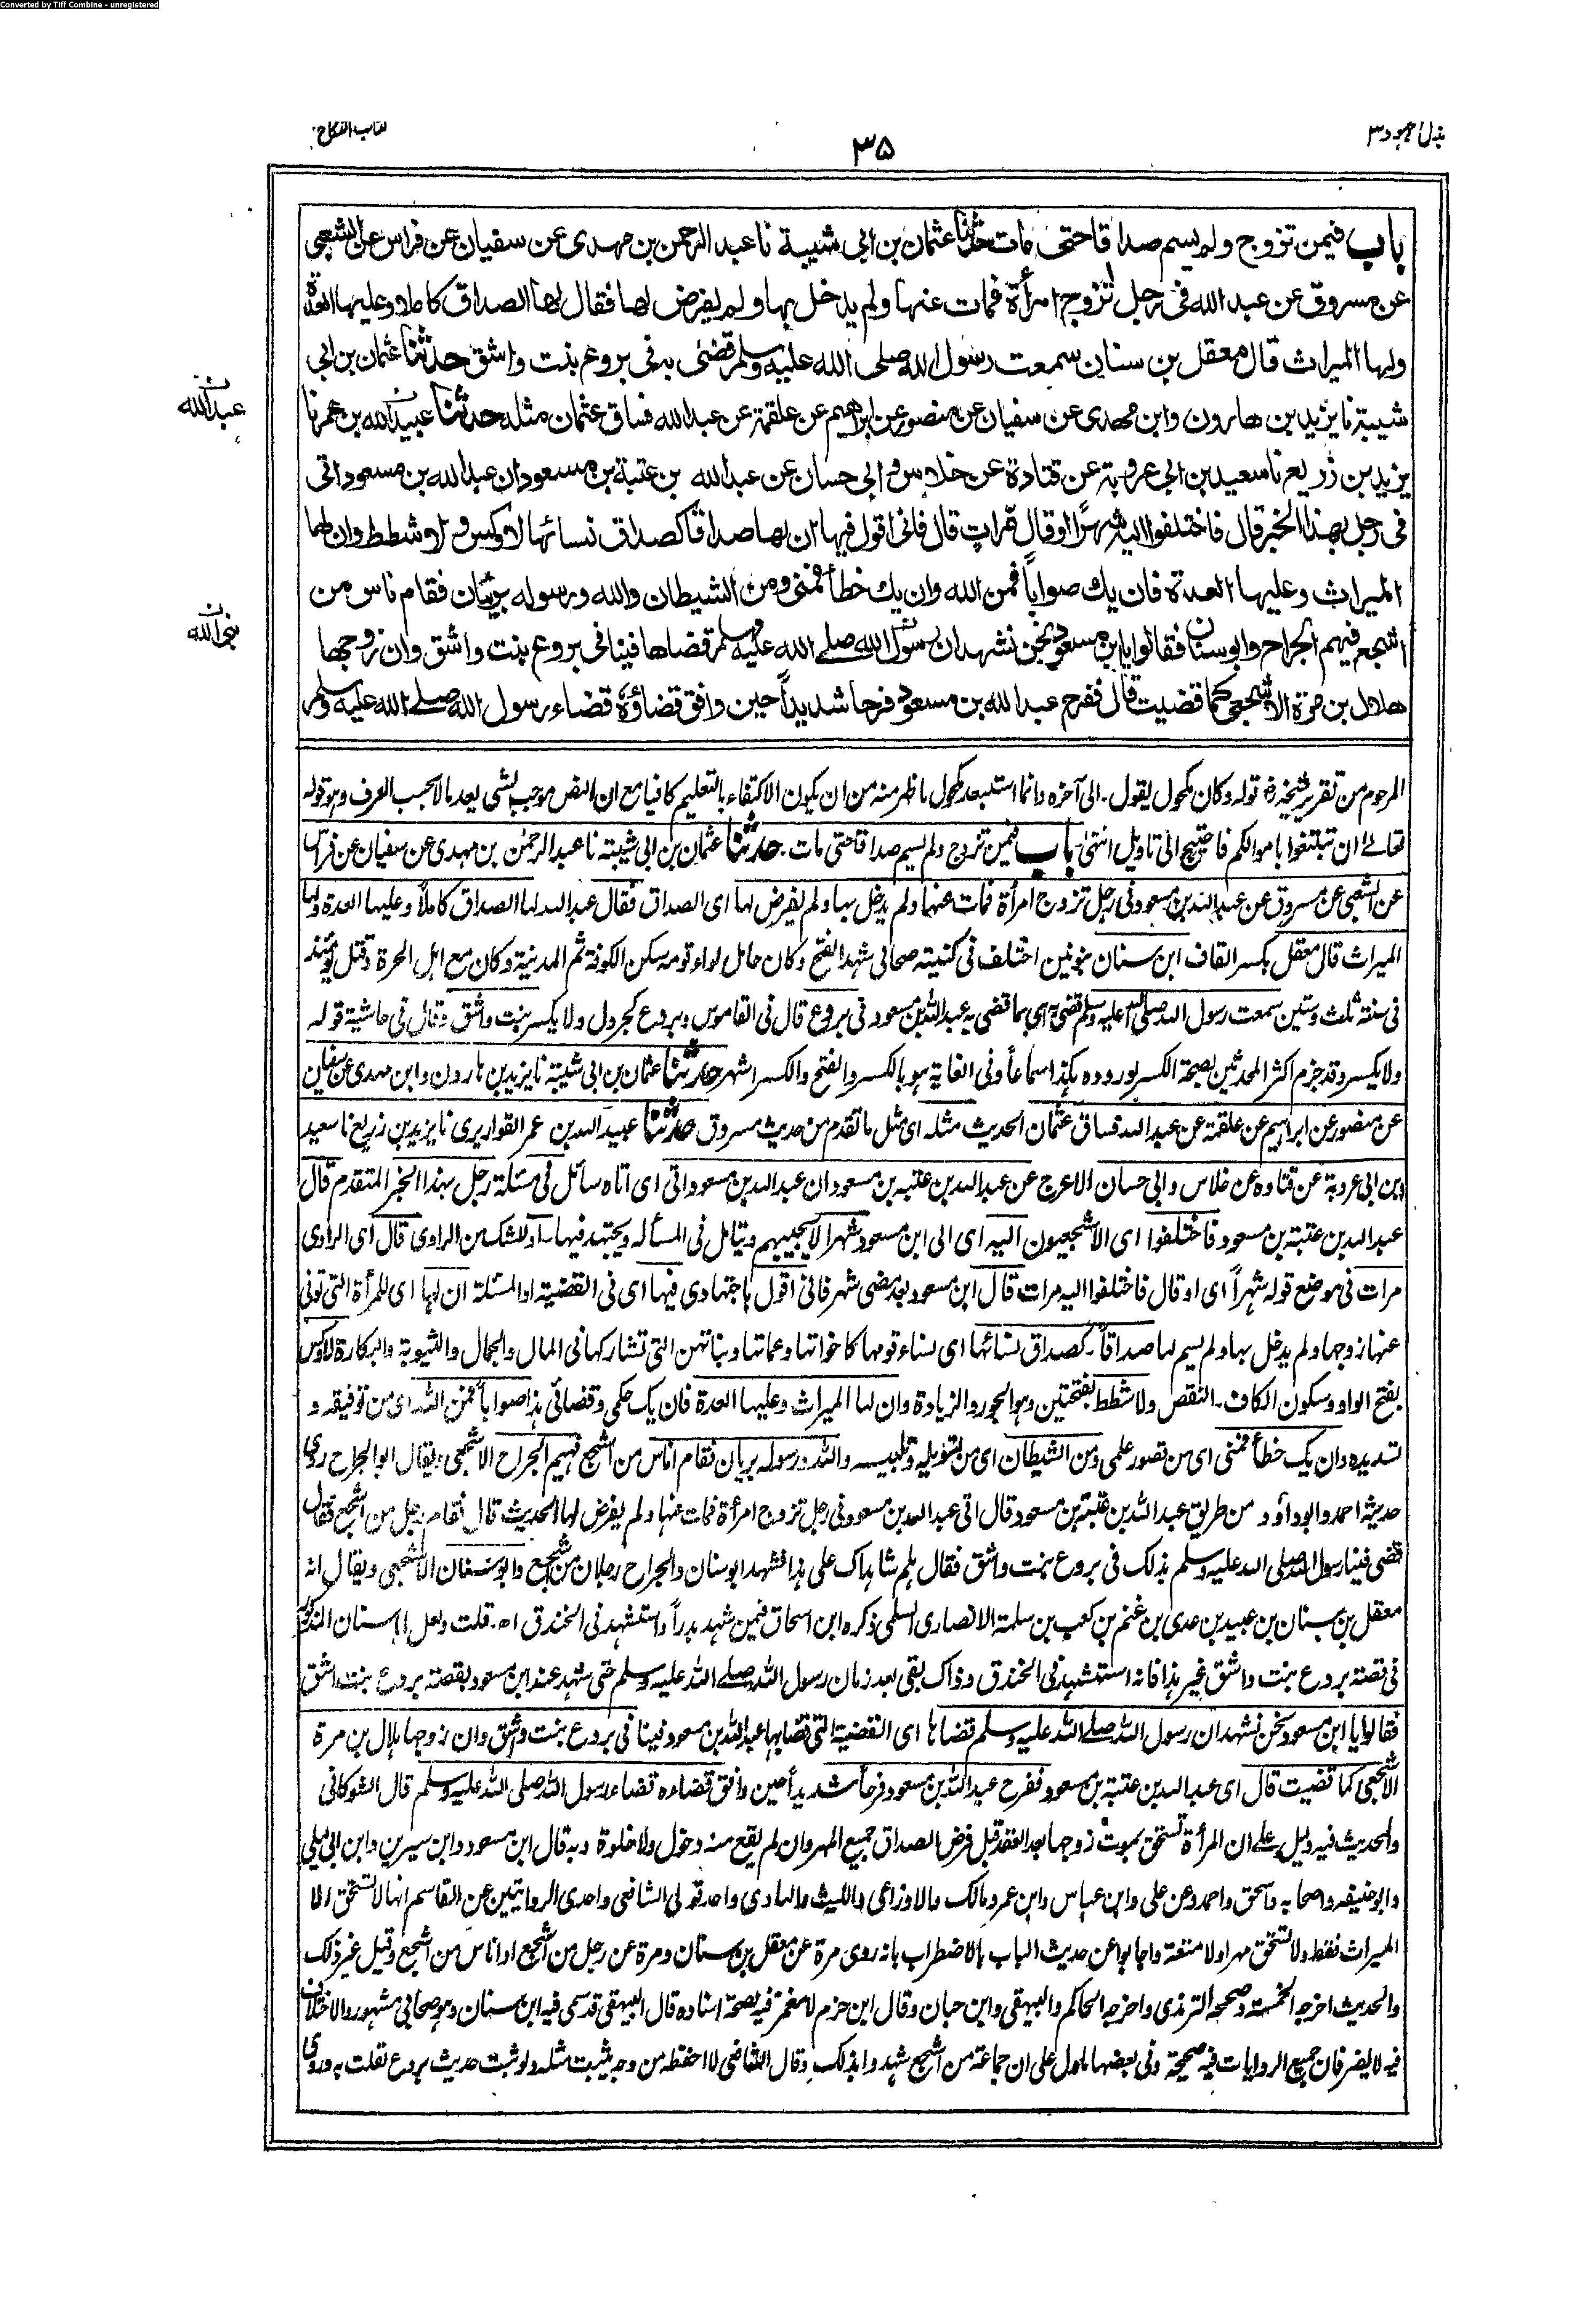 Converted by Tiff Combine - unregistered
بذل المجهود ٣
٣٥
كتاب النكاح
باب فيمن تزوج ولم يسم صداقا حتى مات حدثنا عثمان بن ابى شيبة نا عبد الرحمن بن مهدى عن سفيان عن فراس عن الشعبى
عن مسروق عن عبد الله فى رجل تزوج امرأة فمات عنها ولم يدخل بها ولم يفرض لها فقال لها الصداق كاملا وعليها العدة
ولها الميراث قال معقل بن سنان سمعت رسول الله صلى الله عليه وسلم قضى به فى بروع بنت واشق حدثنا عثمان بن ابى
شيبة نا يزيد بن هارون وابن مهدى عن سفيان عن منصور عن ابراهيم عن علقمة عن عبد الله فساق عثمان مثله حدثنا عبيد الله بن عمر نا
يزيد بن زريع نا سعيد بن ابى عروبة عن قتادة عن خلاس وابى حسان عن عبد الله بن عتبة بن مسعود ان عبد الله بن مسعود اتى
فى رجل بهذا الخبر قال فاختلفوا اليه شهرا او قال مرات قال فانى اقول فيها ان لها صداقا كصداق نسائها لا وكس ولا شطط وان لها
الميراث وعليها العدة فان يك صوابا فمن الله وان يك خطأ فمنى ومن الشيطان والله ورسوله بريئان فقام ناس من
اشجع فيهم الجراح وابو سنان فقالوا يا ابن مسعود نحن نشهد ان رسول الله صلى الله عليه وسلم قضاها فينا فى بروع بنت واشق وان زوجها
هلال بن مرة الاشجعى كما قضيت قال ففرح عبد الله بن مسعود فرحا شديدا حين وافق قضاؤه قضاء رسول الله صلى الله عليه وسلم
ن
عبد الله
ن
نبى الله
المرحوم من تقرير شيخه قوله وكان مكحول يقول - الى آخره وانما استبعد مكحول ما ظهر منه من ان يكون الاكتفاء بالتعليم كافيا مع ان النص موجب لشى يعد مالا بحسب العرف وهو قوله
تعالى ان تبتغوا باموالكم فاحتيج الى تاويل انتهى باب فيمن تزوج ولم يسم صداقا حتى مات - حدثنا عثمان بن ابى شيبة نا عبد الرحمن بن مهدى عن سفيان عن فراس
عن الشعبى عن مسروق عن عبد الله بن مسعود فى رجل تزوج امرأة فمات عنها ولم يدخل بها ولم يفرض لها اى الصداق فقال عبد الله لها الصداق كاملا وعليها العدة ولها
الميراث قال معقل بكسر القاف ابن سنان بنونين اختلف فى كنيته صحابى شهد الفتح وكان حامل لواء قومه سكن الكوفة ثم المدينة وكان مع اهل الحرة وقتل يومئذ
فى سنة ثلث وستين سمعت رسول الله صلى الله عليه وسلم قضى به اى بما قضى به عبد الله بن مسعود فى بروع قال فى القاموس وبروع كجرول ولا يكسر بنت واشق وقال فى حاشية قوله
ولا يكسر وقد جزم اكثر المحدثين بصحة الكسر لوروده هكذا سماعا وفى الغاية هو بالكسر والفتح والكسر اشهر حدثنا عثمان بن ابى شيبة نا يزيد بن هارون وابن مهدى عن سفيان
عن منصور عن ابراهيم عن علقمة عن عبد الله فساق عثمان الحديث مثله اى مثل ما تقدم من حديث مسروق حدثنا عبيد الله بن عمر القواريرى نا يزيد بن زريع نا سعيد
ابن ابى عروبة عن قتاده عن خلاس وابى حسان الاعرج عن عبد الله بن عتبه بن مسعود ان عبد الله بن مسعود اتى اى اتاه سائل فى مسئلة رجل بهذا الخبر المتقدم قال
عبد الله بن عتبة بن مسعود فاختلفوا اى الاشجعيون اليه اى الى ابن مسعود شهرا لا يجيبهم ويتامل فى المسألة ويجتهد فيها - او للشك من الراوى قال اى الراوى
مرات فى موضع قوله شهرا اى او قال فاختلفوا اليه مرات قال ابن مسعود بعد مضى شهر فانى اقول باجتهادى فيها اى فى القضية او المسئلة ان لها اى للمرأة التى توفى
عنها زوجها ولم يدخل بها ولم يسم لها صداقا - كصداق نسائها اى نساء قومها كاخواتها وعماتها وبناتهن التى تشاركها فى المال والجمال والثيوبة والبكارة لا وكس
بفتح الواو وسكون الكاف - النقص ولا شطط بفتحتين وهو الجور والزيادة وان لها الميراث وعليها العدة فان يك حكمى وقضائى هذا صوابا فمن الله اى من توفيقه و
تسديده وان يك خطأ فمنى اى من تصور علمى ومن الشيطان اى من تسويله وتلبيسه والله ورسوله بريان فقام اناس من اشجع فيهم الجراح الاشجعى - يقال ابو الجراح روى
حديثه احمد وابو داؤد من طريق عبد الله بن عتبة بن مسعود قال اتى عبد الله بن مسعود فى رجل تزوج امرأة فمات عنها ولم يفرض لها الحديث قال فقام رجل من اشجع فقال
قضى فينا رسول الله صلى الله عليه وسلم بذلك فى بروع بنت واشق فقال هلم شاهداك على هذا فشهد ابو سنان والجراح رجلان من اشجع وابو سنان الاشجعى ويقال انه
معقل بن سنان بن عبيد بن عدى بن غنم بن كعب بن سلمة الانصارى السلمى ذكره ابن اسحاق فيمن شهد بدرا واستشهد فى الخندق اه - قلت ولعل ابا سنان المذكور
فى قصة بروع بنت واشق غير هذا فانه استشهد فى الخندق وذاك بقى بعد زمان رسول الله صلى الله عليه وسلم حتى شهد عند ابن مسعود بقصة بروع بنت واشق
فقالوا يا ابن مسعود نحن نشهد ان رسول الله صلى الله عليه وسلم قضاها اى القضية التى قضا بها عبد الله بن مسعود فينا فى بروع بنت واشق وان زوجها هلال بن مرة
الاشجعى كما قضيت قال اى عبد الله بن عتبة بن مسعود ففرح عبد الله بن مسعود فرحا شديدا حين وافق قضاءه قضاء رسول الله صلى الله عليه وسلم قال الشوكانى
والحديث فيه دليل على ان المرأة تستحق بموت زوجها بعد العقد قبل فرض الصداق جميع المهر وان لم يقع منه دخول ولا خلوة وبه قال ابن مسعود وابن سيرين وابن ابى ليلى
وابو حنيفه واصحابه واسحق واحمد وعن على وابن عباس وابن عمر ومالك والاوزاعى والليث والهادى واحد قولى الشافعى واحدى الروايتين عن القاسم انها لا تستحق الا
الميراث فقط ولا تستحق مهرا ولا متعة واجابوا عن حديث الباب بالاضطراب بانه روى مرة عن معقل بن سنان ومرة عن رجل من اشجع او اناس من اشجع وقيل غير ذلك
والحديث اخرجه الخمسة وصححه الترمذى واخرجه الحاكم والبيهقى وابن حبان وقال ابن حزم لا مغمز فيه لصحة اسناده قال البيهقى قد سمى فيه ابن سنان وهو صحابى مشهور والاختلاف
فيه لا يضر فان جميع الروايات فيه صحيحة وفى بعضها ما دل على ان جماعة من اشجع شهدوا بذلك وقال الشافعى لا احفظه من وجه يثبت مثله ولو ثبت حديث بروع لقلت به وروى